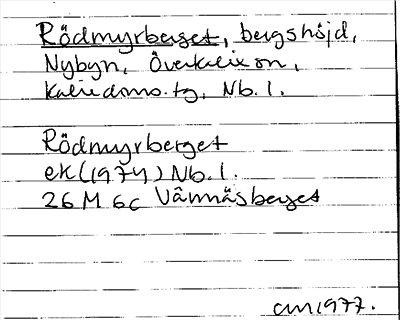 Rödmyrberget, bergshöjd,
Nybyn, Överkalix sn,
Kalix doms.tg, Nb.l.
Rödmyrberget
ek (1974) Nb.l.
26 M 6c Vännäsberget
1977.